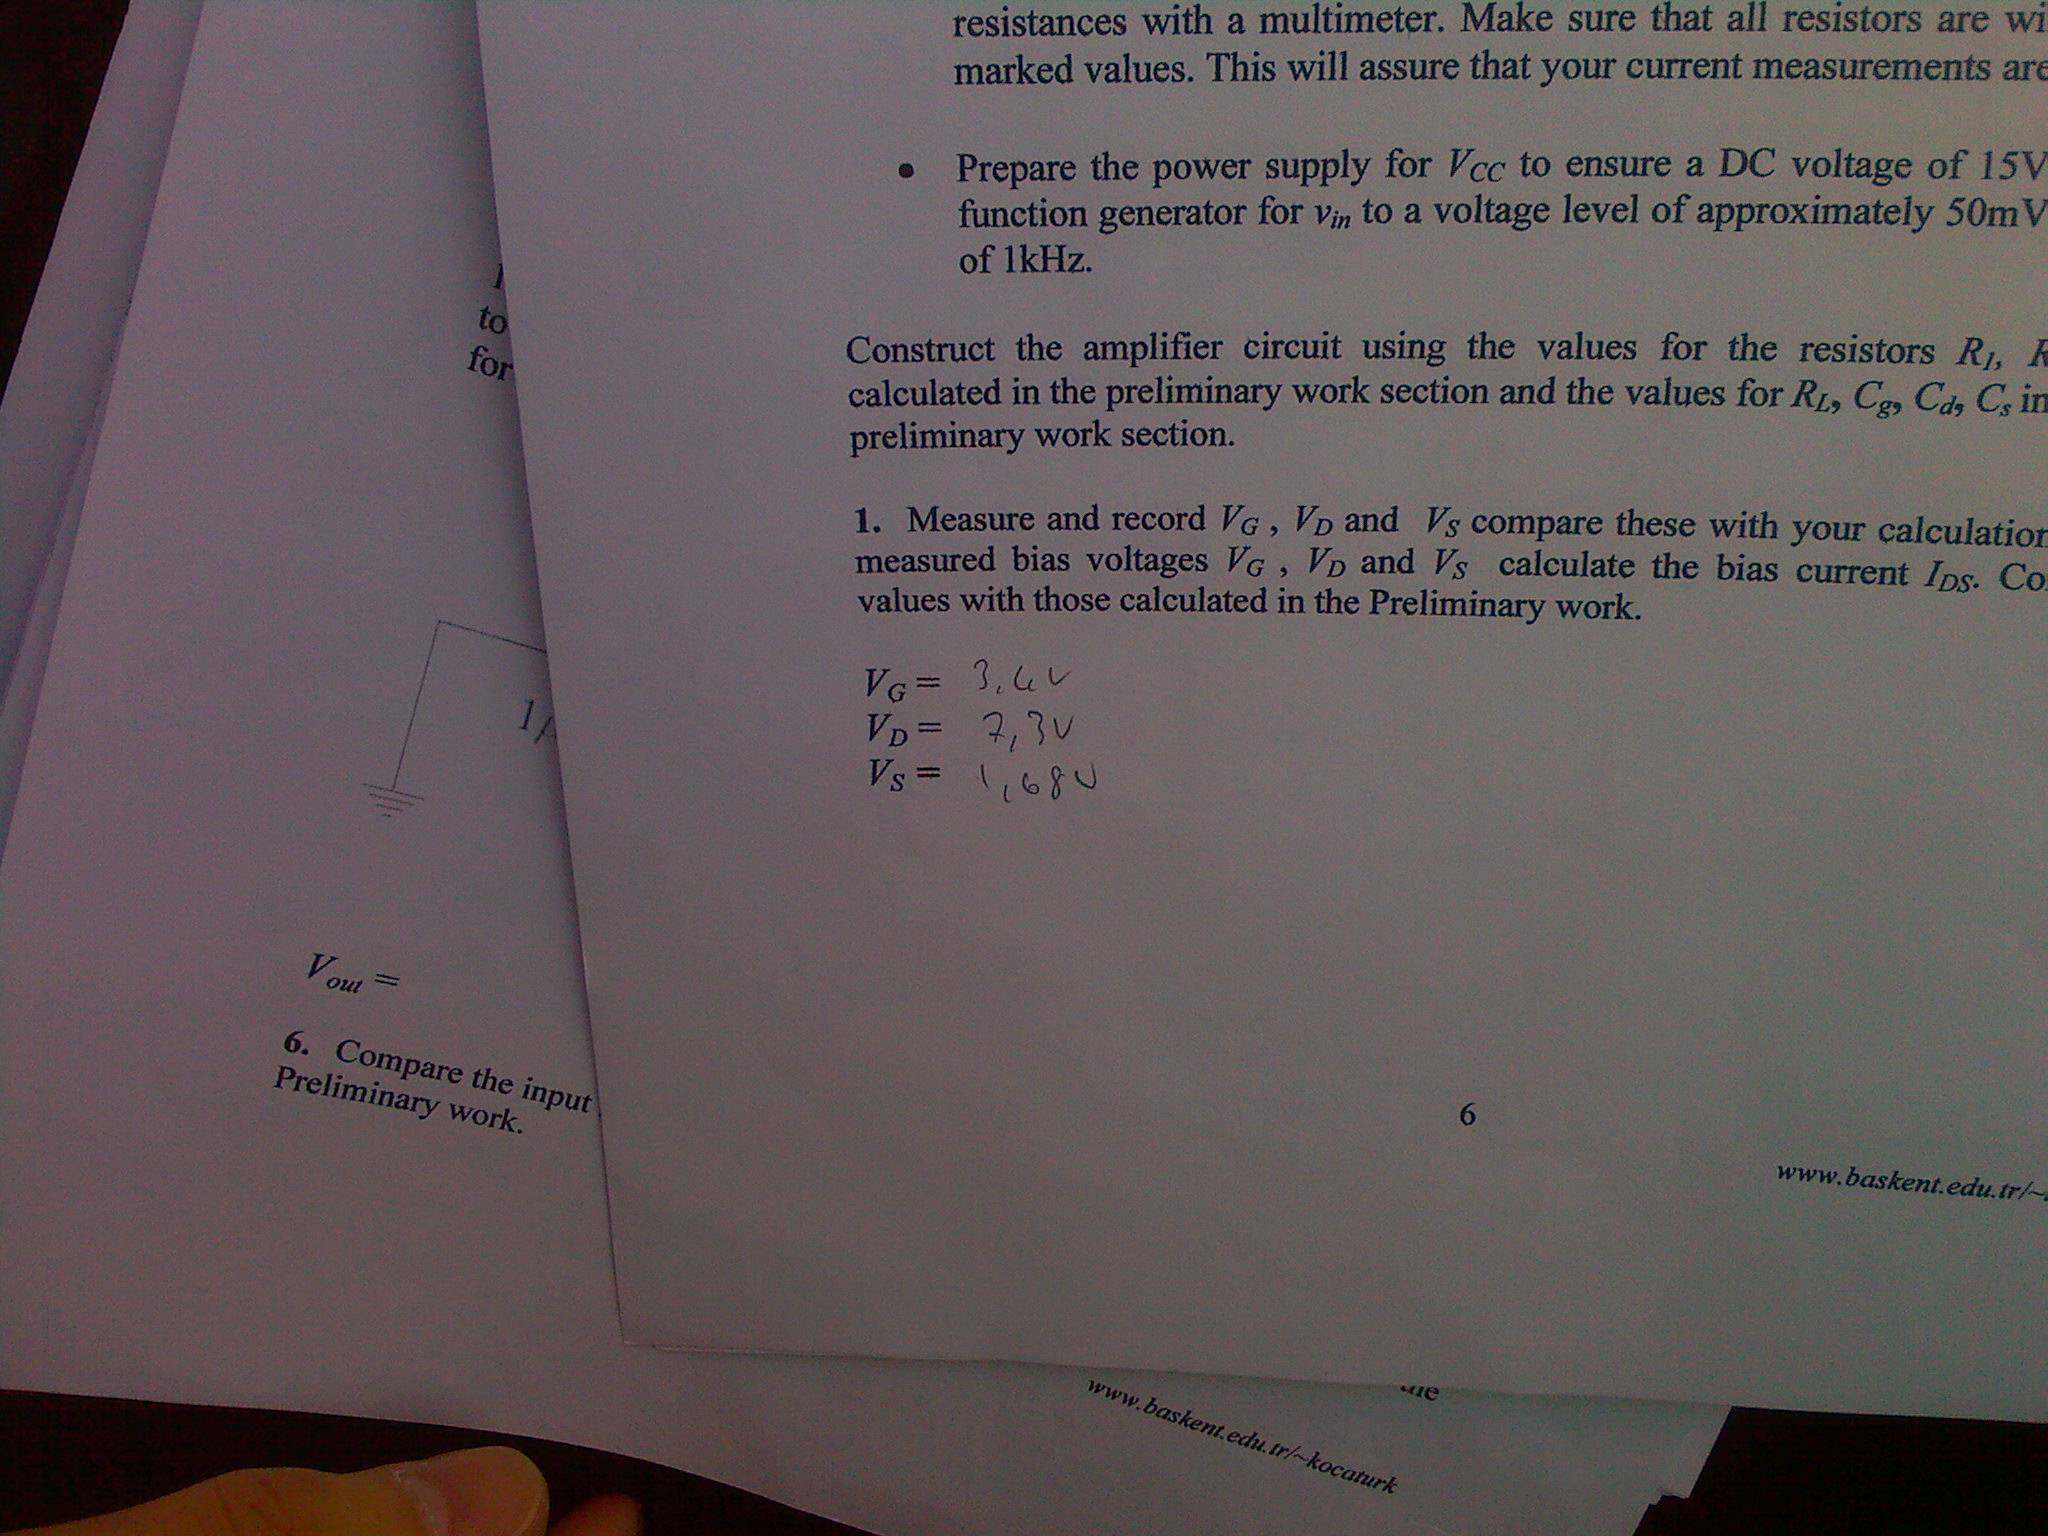 resistances with a multimeter. Make sure that all resistors are wi
marked values. This will assure that your current measurements are
• Prepare the power supply for VCC to ensure a DC voltage of 15V
function generator for vin to a voltage level of approximately 50mV
of 1kHz.
Construct the amplifier circuit using the values for the resistors R1, R
calculated in the preliminary work section and the values for RL, Cg, Cd, Cs in
preliminary work section.
1. Measure and record VG , VD and VS compare these with your calculation
measured bias voltages VG , VD and VS calculate the bias current IDS. Co
values with those calculated in the Preliminary work.
VG = 3,4V
VD = 7,3V
VS = 1,68V
6
www.baskent.edu.tr/~
to
for
1
Vout =
6. Compare the input
Preliminary work.
www.baskent.edu.tr/~kocaturk